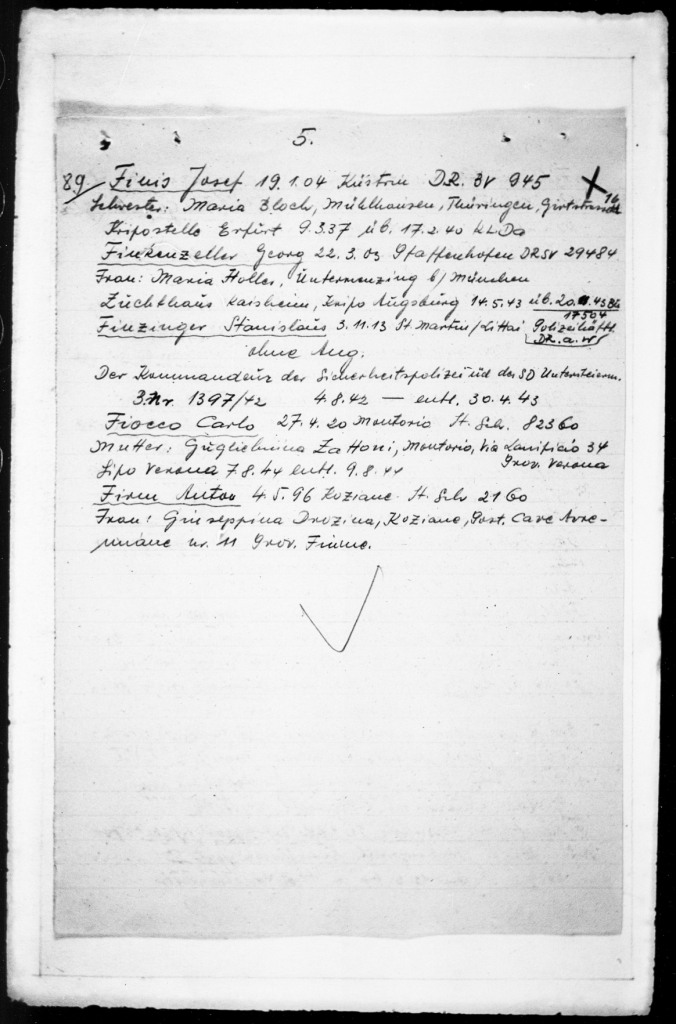 5.
89/ Finis Josef 19.1.04 Küstrin D.R. BV 945 X
Schwester: Maria Bloch, Mühlhausen, Thüringen, 16
Kripostelle Erfurt 9.3.37 üb. 17.2.40 KL Da
Finkenzeller Georg 22.3.03 Pfaffenhofen DRSV 29484
Frau: Maria Holler, Untermenzing b/München
Zuchthaus Kaisheim, Kripo Augsburg 14.5.43 üb. 43 Bu
17504
Finzinger Stanislaus 3.11.13 St. Martin/Littai Polizeihäftl.
DR. a. W
ohne Ang.
Der Kommandeur der Sicherheitspolizei u d des SD Untersteierm.
3. Nr. 1397/42 4.8.42 — entl. 30.4.43
Fiocco Carlo 27.4.20 Montorio It. Sch. 82360
Mutter: Guglielmina Zattoni, Montorio, Via Lanificio 34
Prov. Verona
Sipo Verona 7.8.44 entl. 9.8.44
Firm Anton 4.5.96 Koziane It. Sch 2160
Frau: Giuseppina Drozina, Koziane, Post. Cave Avre-
miane nr. 11 Prov. Fiume.